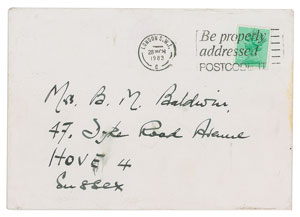 LONDON S.W.1.
1983
Be properly
addressed
POSTCODE IT
Mrs. B. M. Baldwin,
47, Dyke Road Avenue
HOVE 4
Sussex